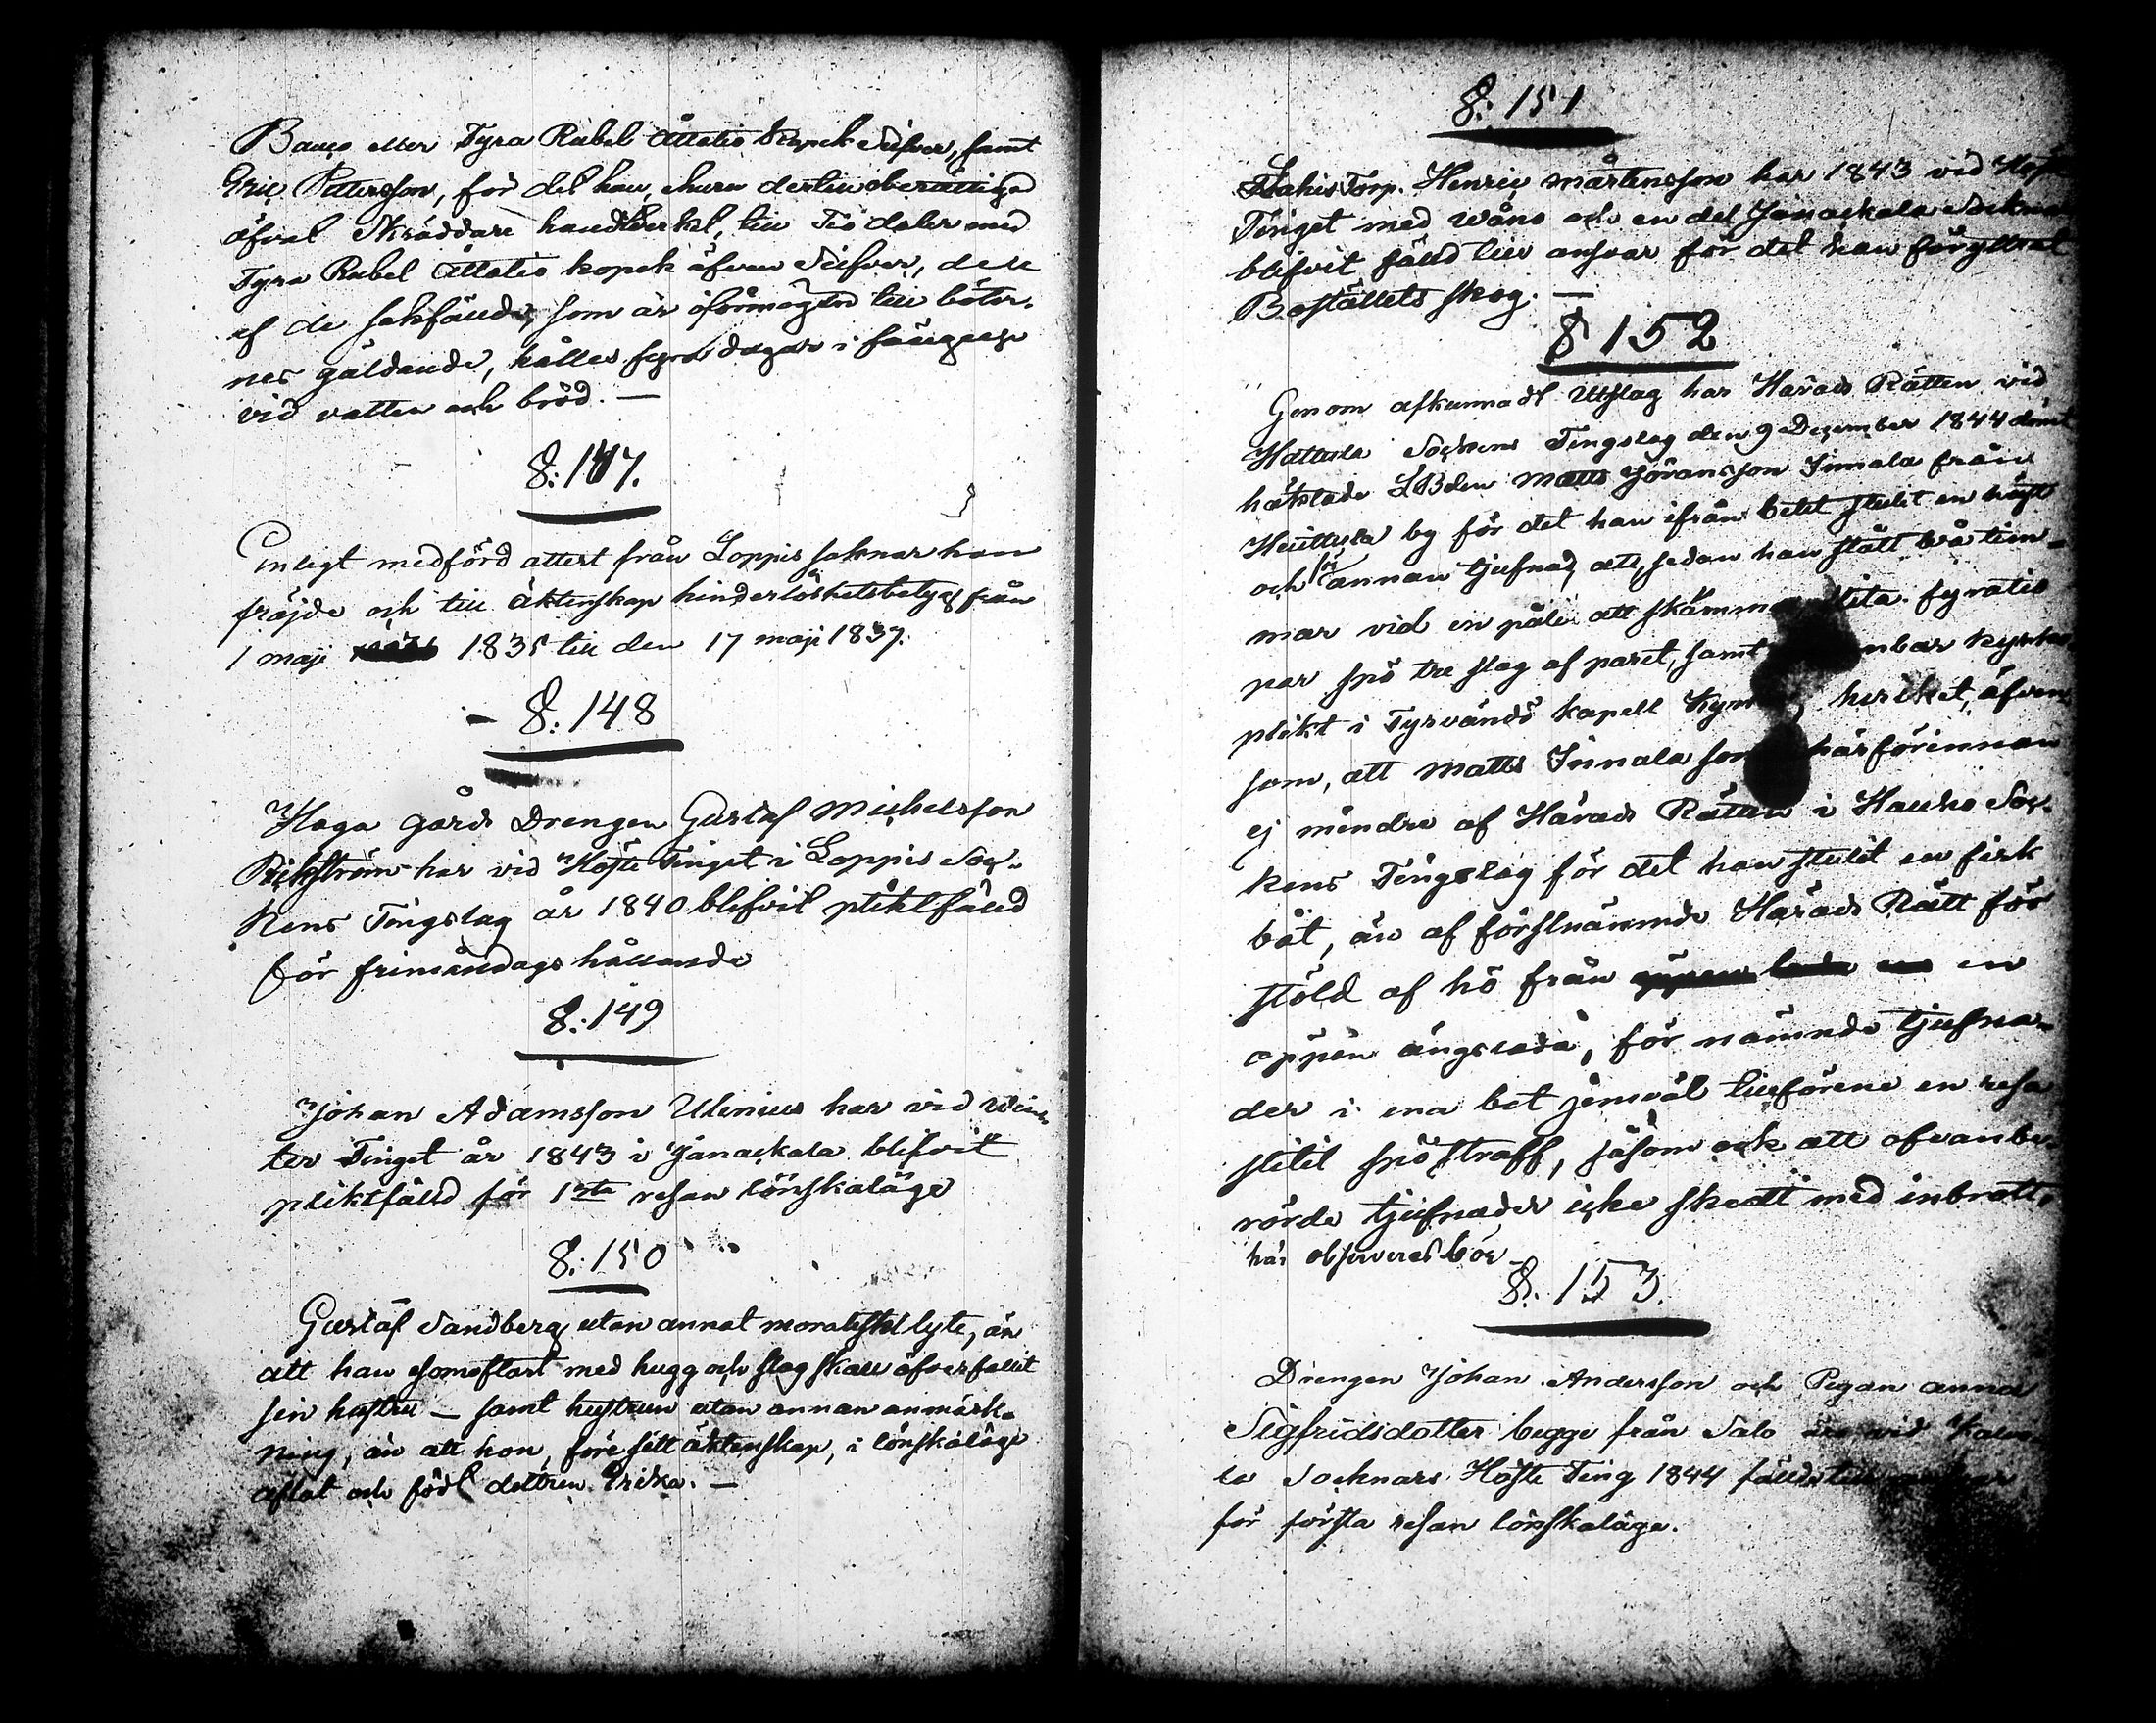 Banco eller Fyra Rubel Åttatio kopek Silfver, samt
Eric Pettersson, för det han, ehuru dertill oberättigad
öfvat Skräddare handtverket, till Tio daler med
Fyra Rubel Åttatio kopek äfven Silfver, dock
af de sakfällde, som är oförmögen till böter-
nes gäldande, hålles fyra dagar i fängelse
vid vatten och bröd. —
§: 147.
Enligt medförd attest från Loppis saknar han
fräjde och till äktenskap hinderlöshetsbetyg från
1 maji 1835 till den 17 maji 1837.
- §: 148
Haga gårds Drengen Gustaf Michelsson
Rickström har vid Höste Tinget i Loppis Soc-
kens Tingslag år 1840 blifvit pliktfälld
för frimåndags hållande
§: 149
Johan Adamsson Ulenius har vid Win-
ter Tinget år 1843 i Janackala blifvit
pliktfälld för 1sta resan lönskaläge
§: 150
Gustaf Sandberg utan annat moraliskt lyte, än
att han somoftast med hugg och slag skall öfverfallit
sin hustru — samt hustrun utan annan anmärk-
ning, än att hon, före sitt äktenskap, i lönskaläge
aflat och födt dottren Ericka. —
§: 151
Torp. Henric Mårtensson har 1843 vid Höste
Tinget med Wåno och en del Janackala Socknar
blifvit fälld till ansvar för det han föryttrat
Boställets skog. —
§ 152
Genom afkunnadt Utslag har Härads Rätten vid
Hattula Sockens Tingslag den 9 December 1844 dömt
häktade LBden Matts Jöransson Innala från
Huittula by för det han ifrån betet stulit en häst
och för annan tjufnad, att, sedan han stått två tim-
mar vid en påle att skämmas slita fyratio
par spö tre slag af paret, samt uppenbar kyrko-
plikt i Tyrvändö kapell Kyrka, hvilket, äfven
som, att Matts Innala som härförinnan
ej mindre af Härads Rätten i Hauho Soc-
kens Tingslag för det han stulit en fisk
båt, än af förstnämnde Härads Rätt för
stöld af hö från en
öppen ängslada, för nämnde tjufna-
der i ena bot jemväl tillförene en resa
slitit spöstraff, såsom ock att ofvanbe-
rörde tjufnader icke skedt med inbrott,
här observeras bör —
§. 153.
Drengen Johan Andersson och Pigan Anna
Sigfridsdotter begge från Salo äro vid
Socknars Höste Ting 1844 fällde till
för första resan lönskaläge.